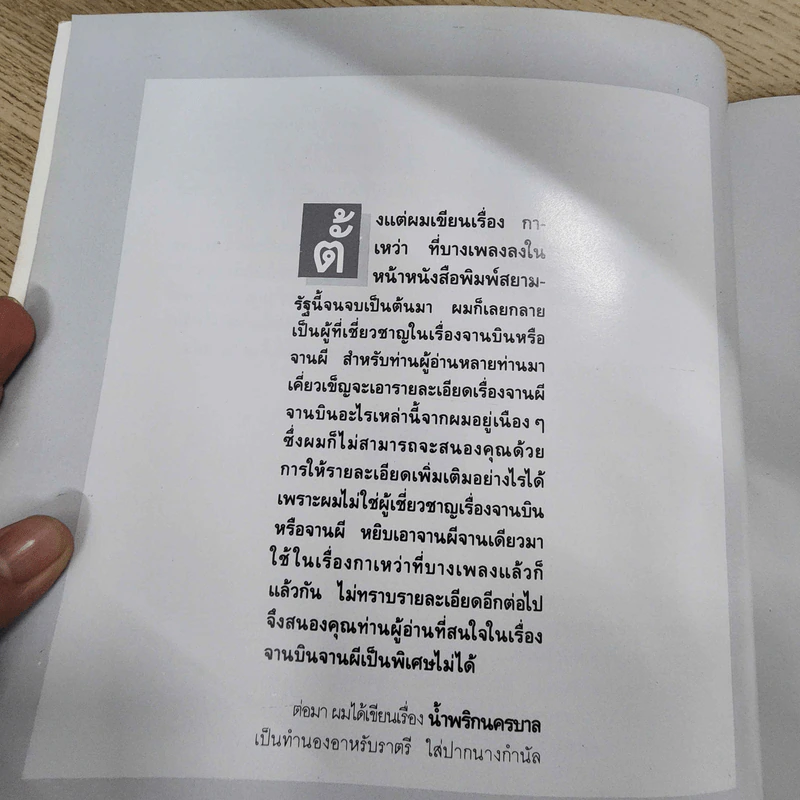 ตั้งแต่ผมเขียนเรื่อง กา-
เหว่า ที่บางเพลงลงใน
หน้าหนังสือพิมพ์สยาม-
รัฐนี้จนจบเป็นต้นมา ผมก็เลยกลาย
เป็นผู้ที่เชี่ยวชาญในเรื่องจานบินหรือ
จานผี สำหรับท่านผู้อ่านหลายท่านมา
เคี่ยวเข็ญจะเอารายละเอียดเรื่องจานผี
จานบินอะไรเหล่านี้จากผมอยู่เนือง ๆ
ซึ่งผมก็ไม่สามารถจะสนองคุณด้วย
การให้รายละเอียดเพิ่มเติมอย่างไรได้
เพราะผมไม่ใช่ผู้เชี่ยวชาญเรื่องจานบิน
หรือจานผี หยิบเอาจานผีจานเดียวมา
ใช้ในเรื่องกาเหว่าที่บางเพลงแล้วก็
แล้วกัน ไม่ทราบรายละเอียดอีกต่อไป
จึงสนองคุณท่านผู้อ่านที่สนใจในเรื่อง
จานบินจานผีเป็นพิเศษไม่ได้
ต่อมา ผมได้เขียนเรื่อง น้ำพริกนครบาล
เป็นทำนองอาหรับราตรี ใส่ปากนางกำนัล